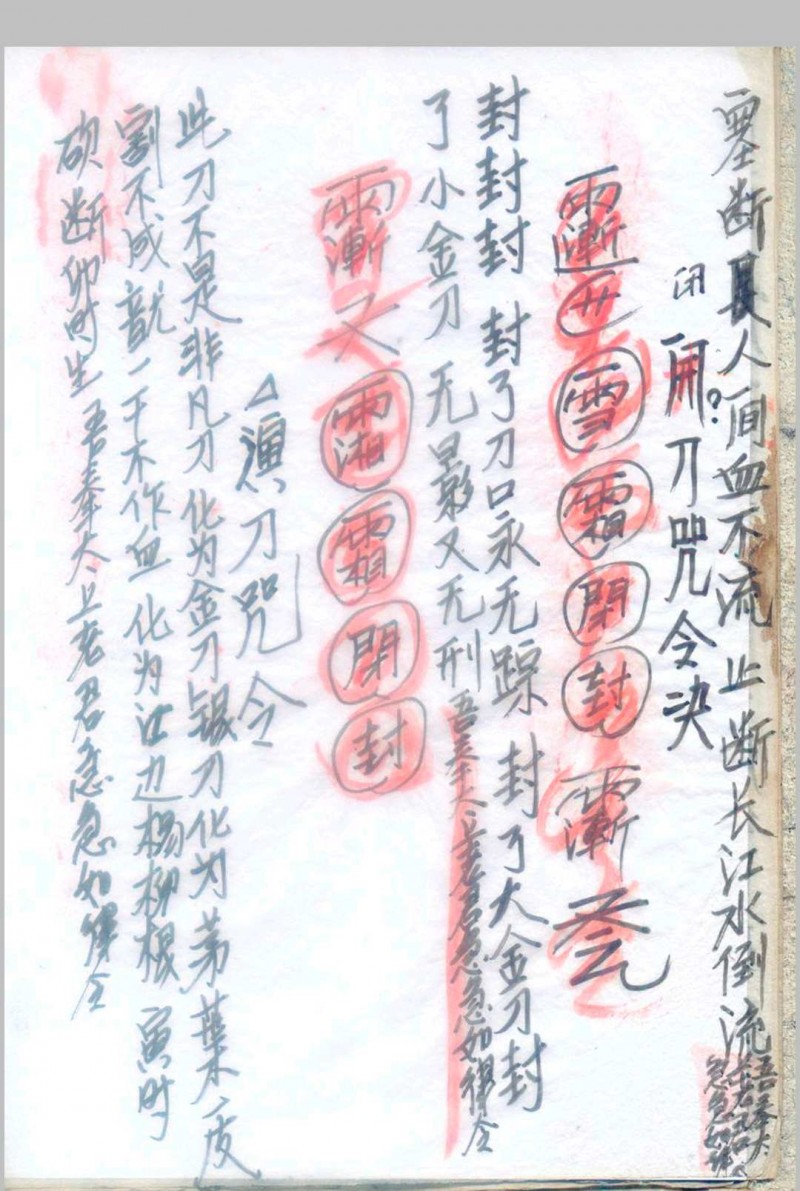 断長人间血不流止断长江水倒流吾奉太上老君急急如律令
闭 闹?刀咒令決
雪霜閉封
封封封 封了刀口永无踪 封了大金刀封
了小金刀 无影又无刑 吾奉太上老君急急如律令
霜閉封
演刀咒令
此刀不是非凡刀 化为金刀银刀化为茅葉木皮
割不成 一千不作血 化为江边杨柳根 寅时
砍断卯时生 吾奉太上老君急急如律令